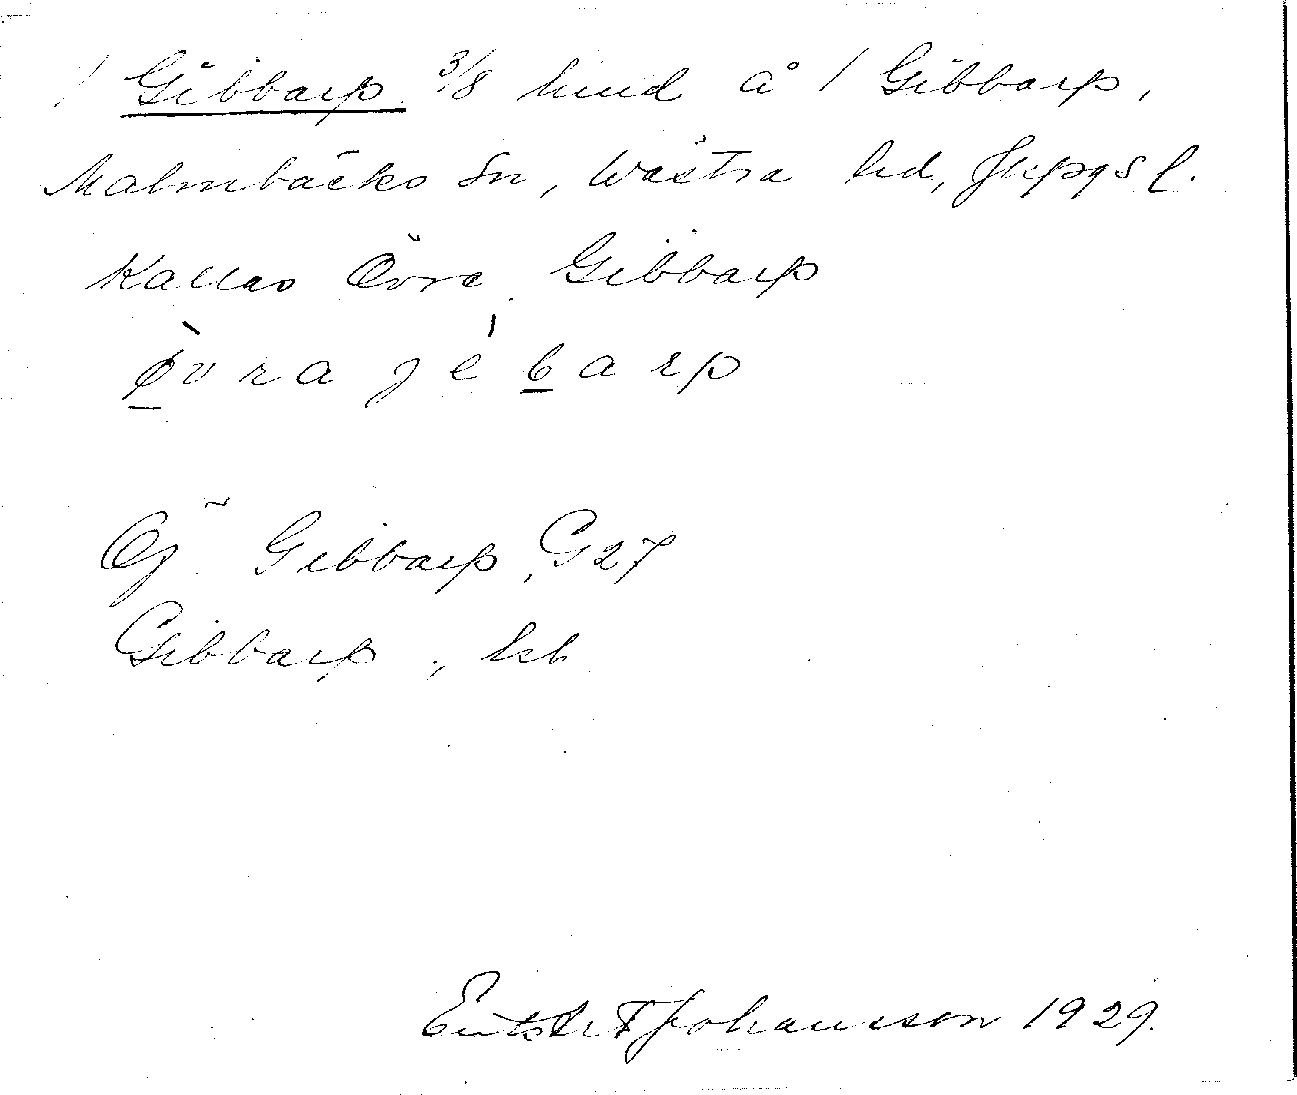 1 Gibbarp 3/8 hmd å 1 Gibbarp,
Malmbäcks Sn, Västra hd, Jkpgs l.
Kallas Övra Gibbarp
övra jebarp
Öf Gibbarp, G27
Gibbarp, hb
Johansson 1929.